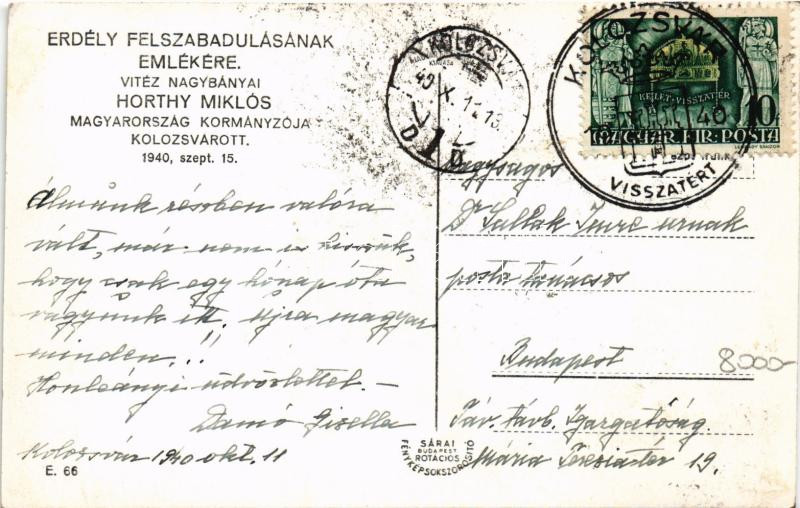 ERDÉLY FELSZABADULÁSÁNAK
EMLÉKÉRE.
VITÉZ NAGYBÁNYAI
HORTHY MIKLÓS
MAGYARORSZÁG KORMÁNYZÓJA
KOLOZSVÁROTT.
1940, szept. 15.
Álmunk részben valóra
vált, már nem is hisszük,
hogy csak egy hónap óta
vagyunk itt. Újra magyar
minden.!!
Honleányi üdvözlettel. —
Damó Gisella
Kolozsvár 1940 okt. 11
E. 66
KOLOZSVÁR
40 X. 11
1
D D
KOLOZSVÁR
40
VISSZATÉRT
KELET VISSZATÉR
10
MAGYAR KIR. POSTA
Nagyságos
Dr Imre urnak
posta tanácsos
Budapest
8000-
Táv. távb. Igazgatóság.
Mária Terézia tér 19.
SÁRAI
BUDAPEST
ROTÁCIÓS
FÉNYKÉPSOKSZOROSÍTÓ